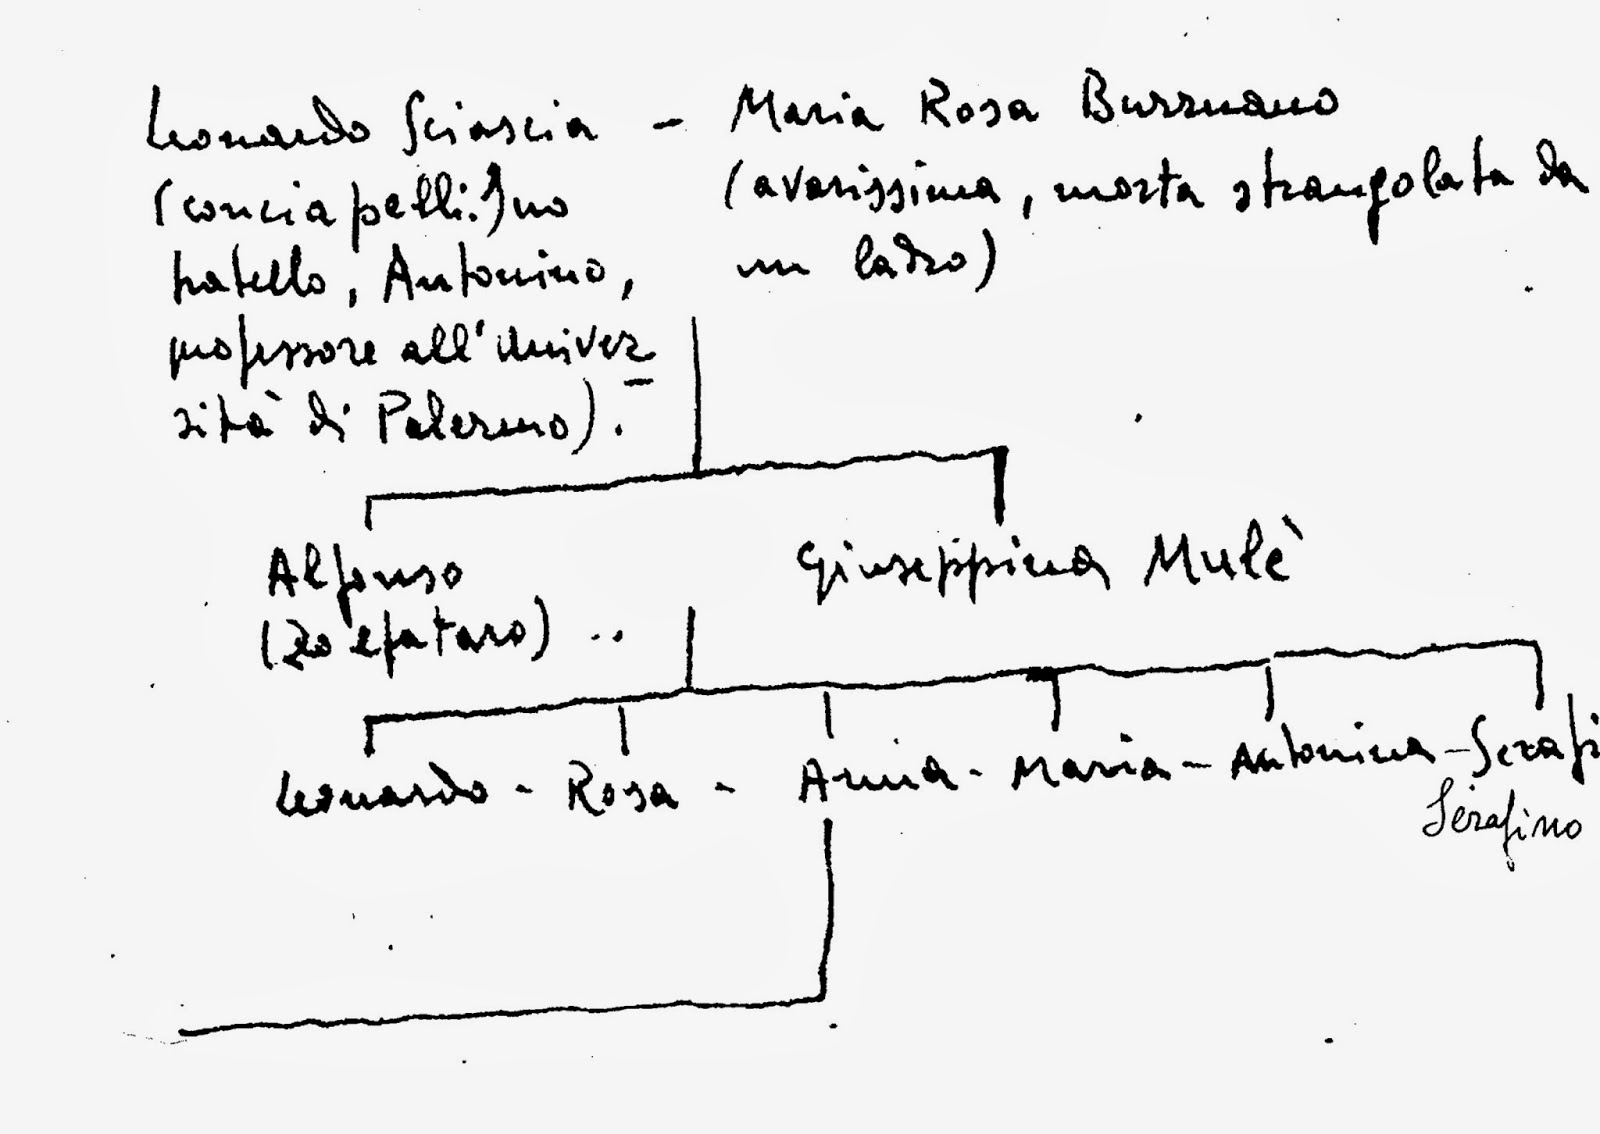 Leonardo Sciascia – Maria Rosa Burruano
(conciapelli: suo
fratello, Antonino,
professore all'univer
sità di Palermo).
(avarissima, morta strangolata da
un ladro)
Alfonso
Giuseppina Mulè
(zo
Leonardo - Rosa - Anna - Maria - Antonina - Serafi
Serafino